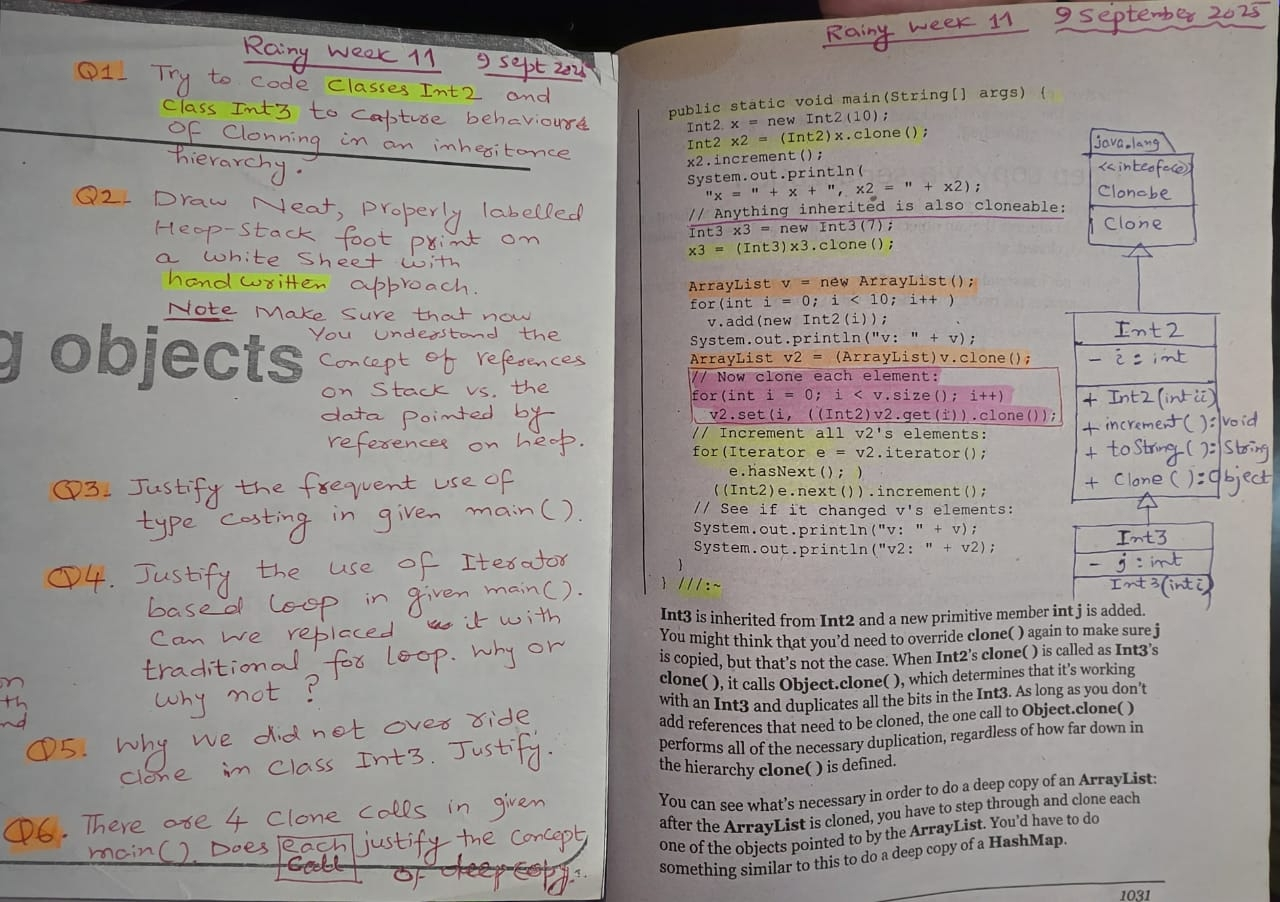 Rainy Week 11
9 Sept 2025
Q1- Try to code Classes Int2 and
Class Int3 to capture behaviours
of Clonning in an inheritance
hierarchy.
Q2- Draw Neat, properly labelled
Heap-Stack foot print on
a white Sheet with
hand written approach.
Note Make Sure that now
You understand the
Concept of references
on Stack vs. the
data pointed by
references on heap.
g objects
Q3- Justify the frequent use of
type casting in given main().
Q4. Justify the use of Iterator
based loop in given main().
Can we replaced it with
traditional for loop. Why or
why not ?
on
th
nd
Q5. Why we did not over ride
clone in Class Int3. Justify.
Q6. There are 4 Clone calls in given
main(). Does each justify the concept
Call of deep copy.
Rainy week 11 9 September 2025
public static void main(String[] args) {
Int2 x = new Int2(10);
Int2 x2 = (Int2)x.clone();
x2.increment();
System.out.println(
"x = " + x + ", x2 = " + x2);
// Anything inherited is also cloneable:
Int3 x3 = new Int3(7);
x3 = (Int3)x3.clone();
ArrayList v = new ArrayList();
for(int i = 0; i < 10; i++ )
v.add(new Int2(i));
System.out.println("v: " + v);
ArrayList v2 = (ArrayList)v.clone();
// Now clone each element:
for(int i = 0; i < v.size(); i++)
v2.set(i, ((Int2)v2.get(i)).clone());
// Increment all v2's elements:
for(Iterator e = v2.iterator();
e.hasNext(); )
((Int2)e.next()).increment();
// See if it changed v's elements:
System.out.println("v: " + v);
System.out.println("v2: " + v2);
}
} ///:~
java.lang
<<interface>>
Clonabe
Clone
Int2
- i : int
+ Int2(int ii)
+ increment( ): void
+ toString( ): String
+ Clone( ): Object
Int3
- j : int
Int3(int i)
Int3 is inherited from Int2 and a new primitive member int j is added.
You might think that you'd need to override clone( ) again to make sure j
is copied, but that's not the case. When Int2's clone( ) is called as Int3's
clone( ), it calls Object.clone( ), which determines that it's working
with an Int3 and duplicates all the bits in the Int3. As long as you don't
add references that need to be cloned, the one call to Object.clone( )
performs all of the necessary duplication, regardless of how far down in
the hierarchy clone( ) is defined.
You can see what's necessary in order to do a deep copy of an ArrayList:
after the ArrayList is cloned, you have to step through and clone each
one of the objects pointed to by the ArrayList. You'd have to do
something similar to this to do a deep copy of a HashMap.
1031